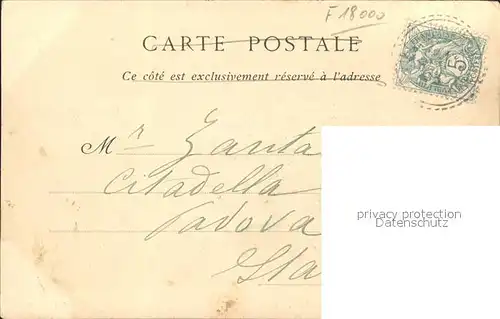 F 18000
CARTE POSTALE
Ce côté est exclusivement réservé à l'adresse
5
Mr Zanta
Citadella
Padova
Ita
privacy protection
Datenschutz